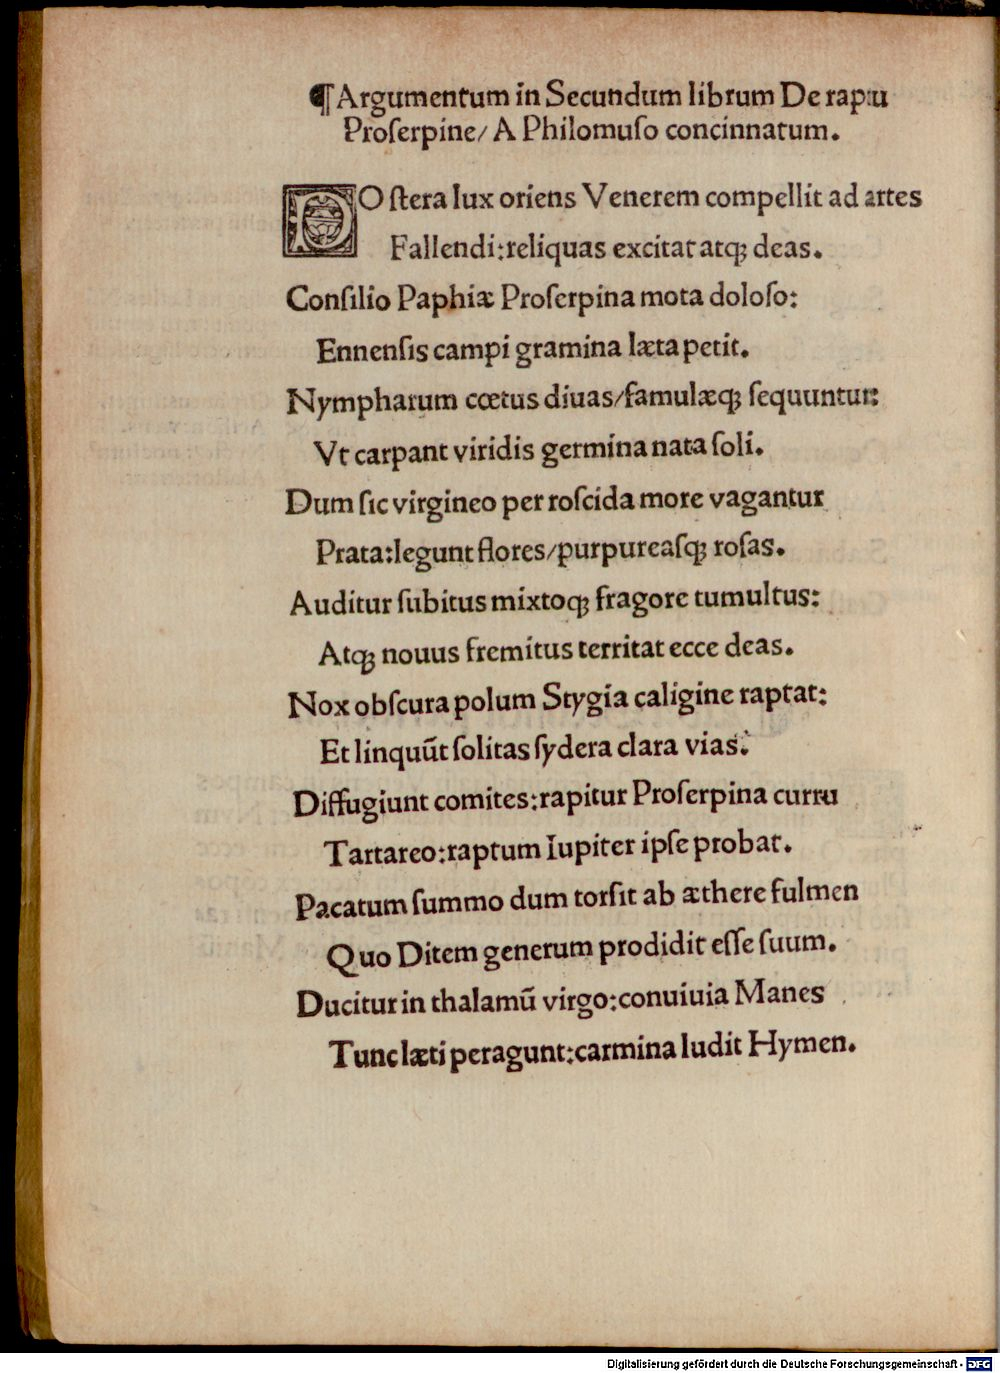 ¶ Argumentum in Secundum librum De raptu
Proſerpine/ A Philomuſo concinnatum.
POſtera lux oriens Venerem compellit ad artes
Fallendi:reliquas excitat atqꝫ deas.
Conſilio Paphiæ Proſerpina mota doloſo:
Ennenſis campi gramina læta petit.
Nympharum cœtus diuas/famulæqꝫ ſequuntur:
Vt carpant viridis germina nata ſoli.
Dum ſic virgineo per roſcida more vagantur
Prata:legunt flores/purpureaſqꝫ roſas.
Auditur ſubitus mixtoqꝫ fragore tumultus:
Atqꝫ nouus fremitus territat ecce deas.
Nox obſcura polum Stygia caligine raptat:
Et linquūt ſolitas ſydera clara vias:
Diffugiunt comites:rapitur Proſerpina curru
Tartareo:raptum Iupiter ipſe probat.
Pacatum ſummo dum torſit ab æthere fulmen
Quo Ditem generum prodidit eſſe ſuum.
Ducitur in thalamū virgo:conuiuia Manes
Tunc læti peragunt:carmina ludit Hymen.
Digitalisierung gefördert durch die Deutsche Forschungsgemeinschaft - DFG